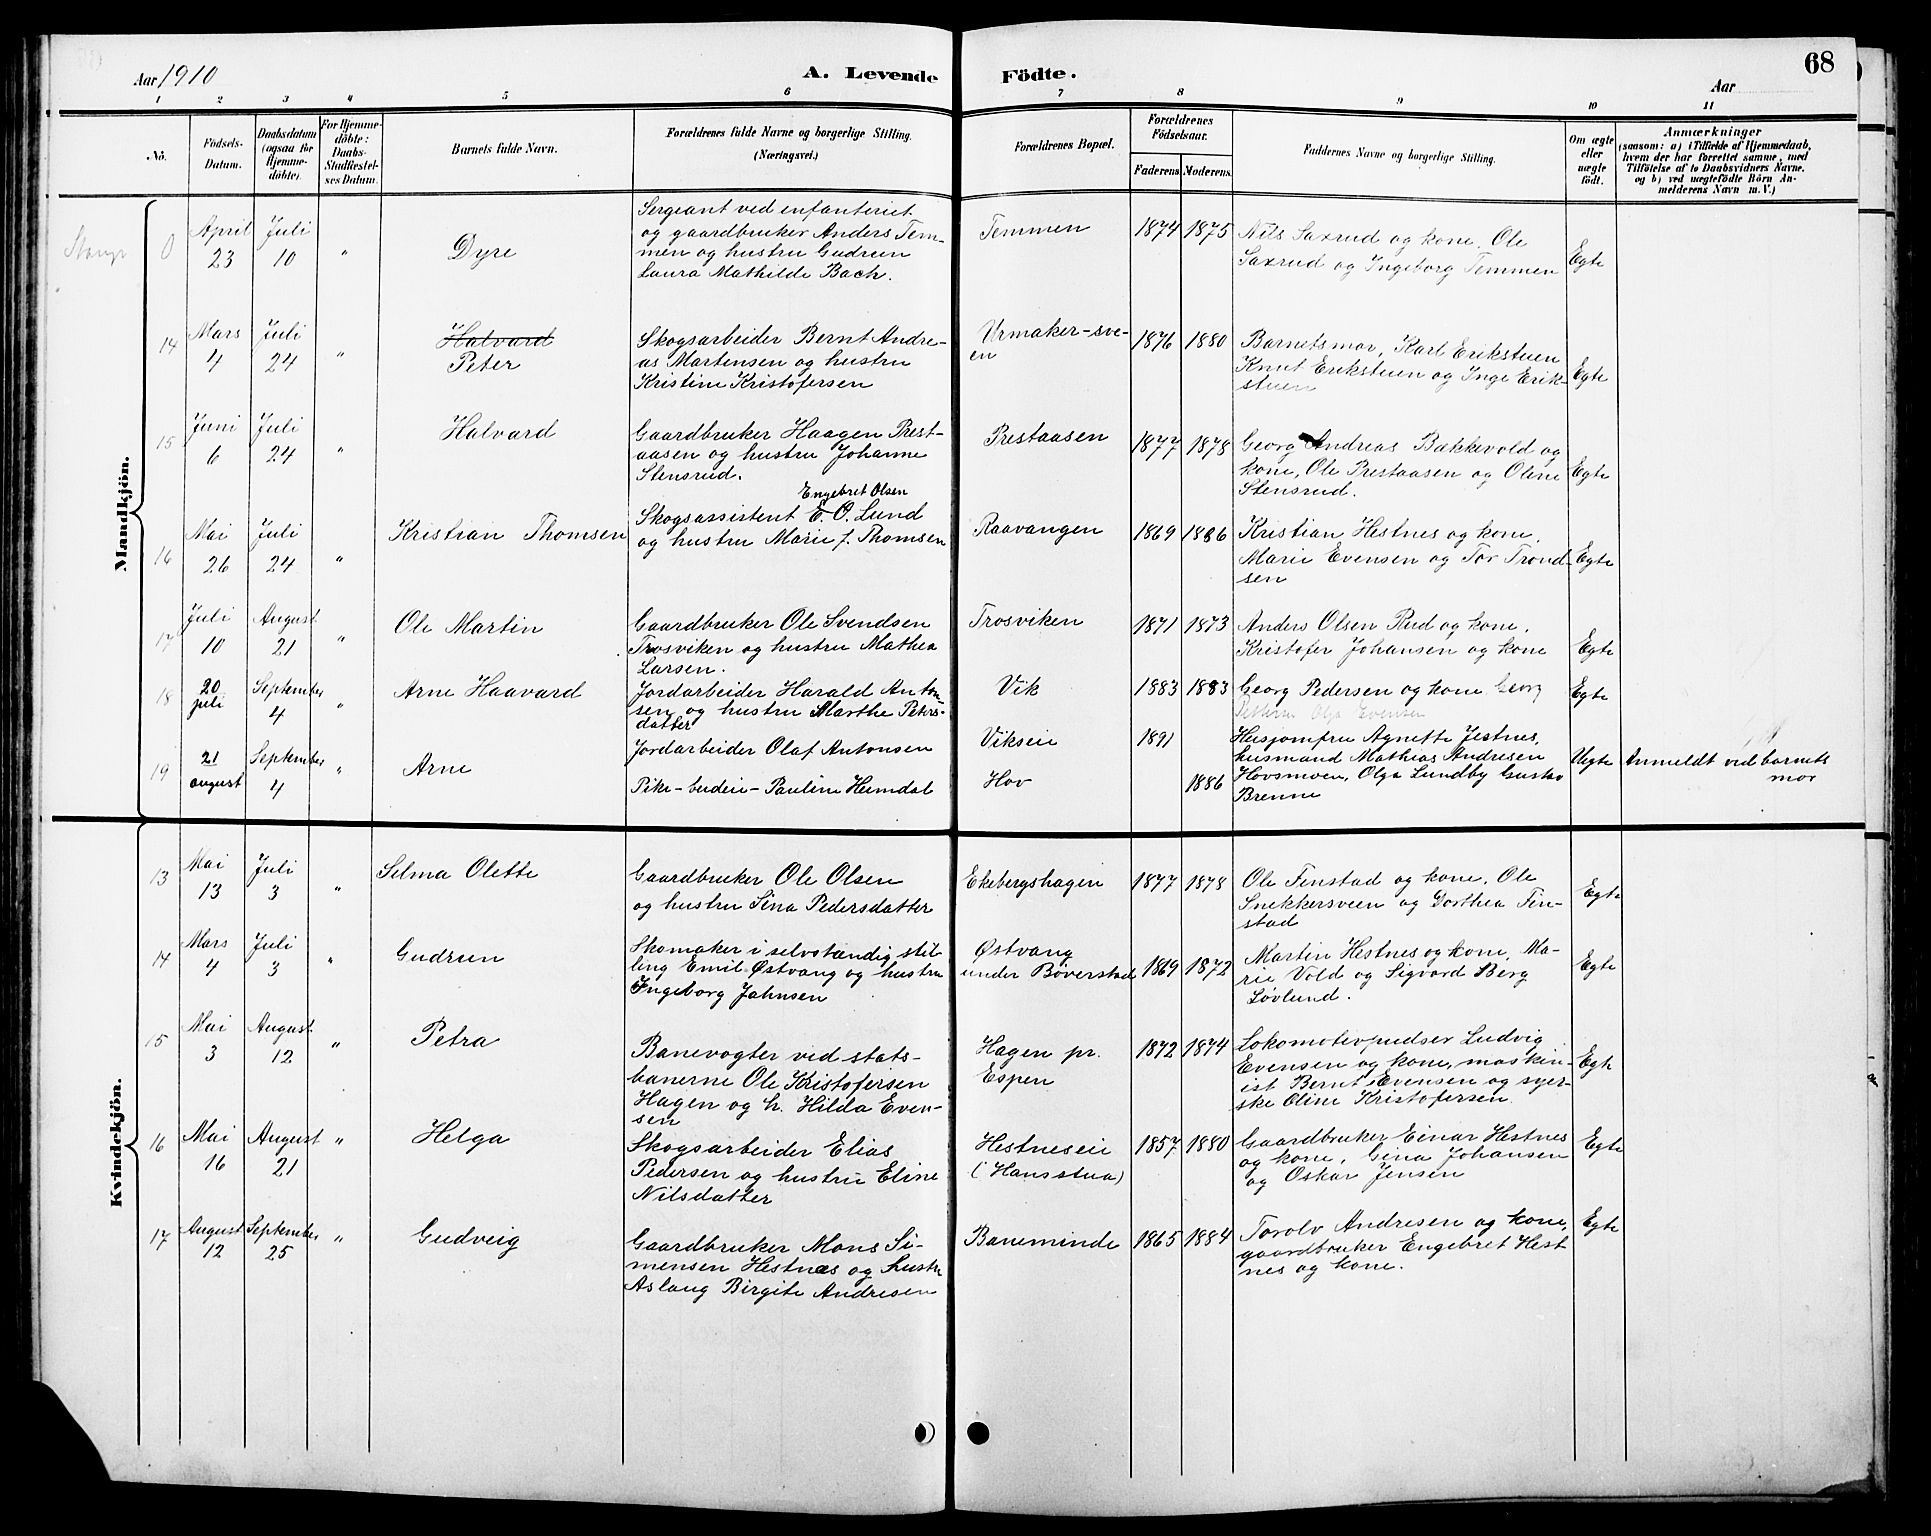 Aar 1910
A. Levende Födte.
68
Aar
1 2 3 4 5 6 7 8 9 10 11
No.
Födsels-Datum.
Daabsdatum (ogsaa for Hjemmedöbte).
For Hjemmedöbte: Daabs-Stadfæstelses Datum.
Barnets fulde Navn.
Forældrenes fulde Navne og borgerlige Stilling. (Næringsvei.)
Forældrenes Bopæl.
Forældrenes Födselsaar.
Faderens Moderens
Faddernes Navne og borgerlige Stilling.
Om ægte eller uægte födt.
Anmærkninger
(saasom: a) i Tilfælde af Hjemmedaab,
hvem der har forrettet samme, med
Tilföielse af to Daabsvidners Navne.
og b) ved uægtefödte Börn Anmelderens Navn m. V.)
Mandkjön.
Stange 0 April 23 Juli 10 " Dyre
Sergeant ved infanteriet
og gaardbruker Anders Tem-
men og hustru Gudrun
Laura Mathilde Bach.
Temmen 1874 1875
Nils Saxrud og kone, Ole
Saxrud og Ingeborg Temmen
Egte
14 Mars 4 Juli 24 " Halvard
Peter
Skogsarbeider Bernt Andre-
as Martensen og hustru
Kristine Kristofersen
Urmaker-sve-
en
1876 1880
Barnets mor, Karl Erikstuen
Knut Erikstuen og Inge Erik-
stuen
Egte
15 Juni 6 Juli 24 " Halvard
Gaardbruker Haagen Prest-
aasen og hustru Johanne
Stensrud.
Prestaasen 1877 1878
Georg Andreas Bækkevold og
kone, Ole Prestaasen og Oline
Stensrud.
Egte
16 Mai 26 Juli 24 " Kristian Thomsen
Engebret Olsen
Skogsassistent E. O. Lund
og hustru Marie f. Thomsen
Raavangen 1869 1886
Kristian Hestnes og kone,
Marie Evensen og Tor Trond-
sen
Egte
17 Juli 10 August 21 " Ole Martin
Gaardbruker Ole Svendsen
Trosviken og hustru Mathea
Larsen.
Trosviken 1871 1873
Anders Olsen Rud og kone,
Kristofer Johansen og kone
Egte
18 20 juli September 4 " Arne Haavard
Jordarbeider Harald Anton-
sen og hustru Marthe Peters-
datter
Vik 1883 1883
Georg Pedersen og kone, Georg
Petters. Olga Evensen
Egte
19 21 august September 4 " Arne
Jordarbeider Olaf Antonsen
Pike - budeie - Pauline Heimdal
Vikseie 1891
Hov 1886
Husjomfru Agnette Jestnes,
husmand Mathias Andresen
Hovsmoen, Olga Lundby Gustav
Brenne
Uegte
Anmeldt ved barnets
mor
Kvindekjön.
13 Mai 13 Juli 3 " Selma Olette
Gaardbruker Ole Olsen
og hustru Sina Pedersdatter
Ekebergshagen 1877 1878
Ole Finstad og kone, Ole
Snekkersveen og Dorthea Fin-
stad
Egte
14 Mars 4 Juli 3 " Gudrun
Skomaker i selvstændig stil-
ling Emil Østvang og hustru
Ingeborg Jahnsen
Østvang
under Bøverstad
1869 1872
Martin Hestnes og kone, Ma-
rie Vold og Sigvard Berg
Løvlund.
Egte
15 Mai 3 August 12 " Petra
Banevogter ved stats-
banerne Ole Kristofersen
Hagen og h. Hilda Even-
sen
Hagen pr.
Espen
1872 1874
Lokomotivpudser Ludvig
Evensen og kone, maskin-
ist Bernt Evensen og syer-
ske Oline Kristofersen
Egte
16 Mai 16 August 21 " Helga
Skogsarbeider Elias
Pedersen og hustru Eline
Nilsdatter
Hestneseie
(Hansstua)
1857 1880
Gaardbruker Einar Hestnes
og kone, Gina Johansen
og Oskar Jensen
Egte
17 August 12 September 25 " Gudveig
Gaardbruker Mons Si-
mensen Hestnæs og hustru
Aslaug Birgite Andresen
Baneminde 1865 1884
Torolv Andresen og kone,
gaardbruker Engebret Hest
nes og kone.
Egte